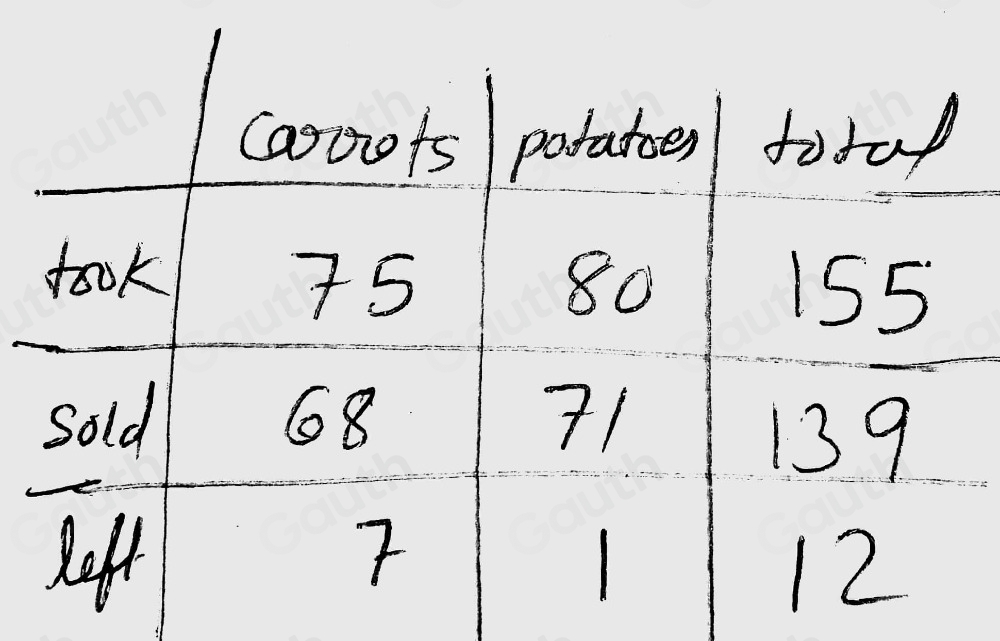 carrots potatoes total
took 75 80 155
sold 68 71 139
left 7 1 12